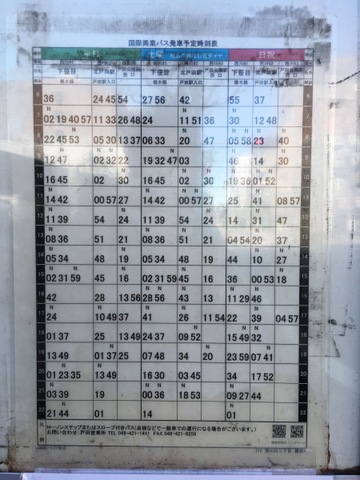 国際興業バス発車予定時刻表
土曜 日祝
下笹目 北戸田駅 下笹目 北戸田駅 下笹目 北戸田駅
36 24 45 54 27 56 42 55 37
02 19 40 57 11 33 26 48 24 11 51 36 30 12 48
22 45 53 05 30 13 37 06 33 20 47 05 58 23 40
12 47 02 32 22 19 32 47 03 46 14 30
16 45 02 30 16 45 02 30 19 36 01 52
14 42 00 57 27 14 42 00 57 27 25 41 08 57
11 39 54 24 11 39 54 24 14 31 47
08 36 51 21 08 36 51 21 04 54 20 37
05 34 48 19 05 34 48 19 44 10 27
02 31 59 45 16 02 31 59 45 16 36 00 53 18
42 28 13 56 28 56 43 13 11 29 46
24 10 49 37 41 26 11 54 22 39 04 57
01 37 25 13 49 24 37 09 52 15 49 32
13 49 01 37 25 07 48 34 20 23 59 07 41
01 23 35 13 49 16 30 03 45 34 17 52
03 39 19 00 36 18 53 09 27 44
21 44 01 14 01
N…ノンステップまたはスロープ付きバス(点検などで一般車での運行になる場合がございます。)
お問い合わせ:戸田営業所 TEL 048-421-1411 FAX 048-421-9259